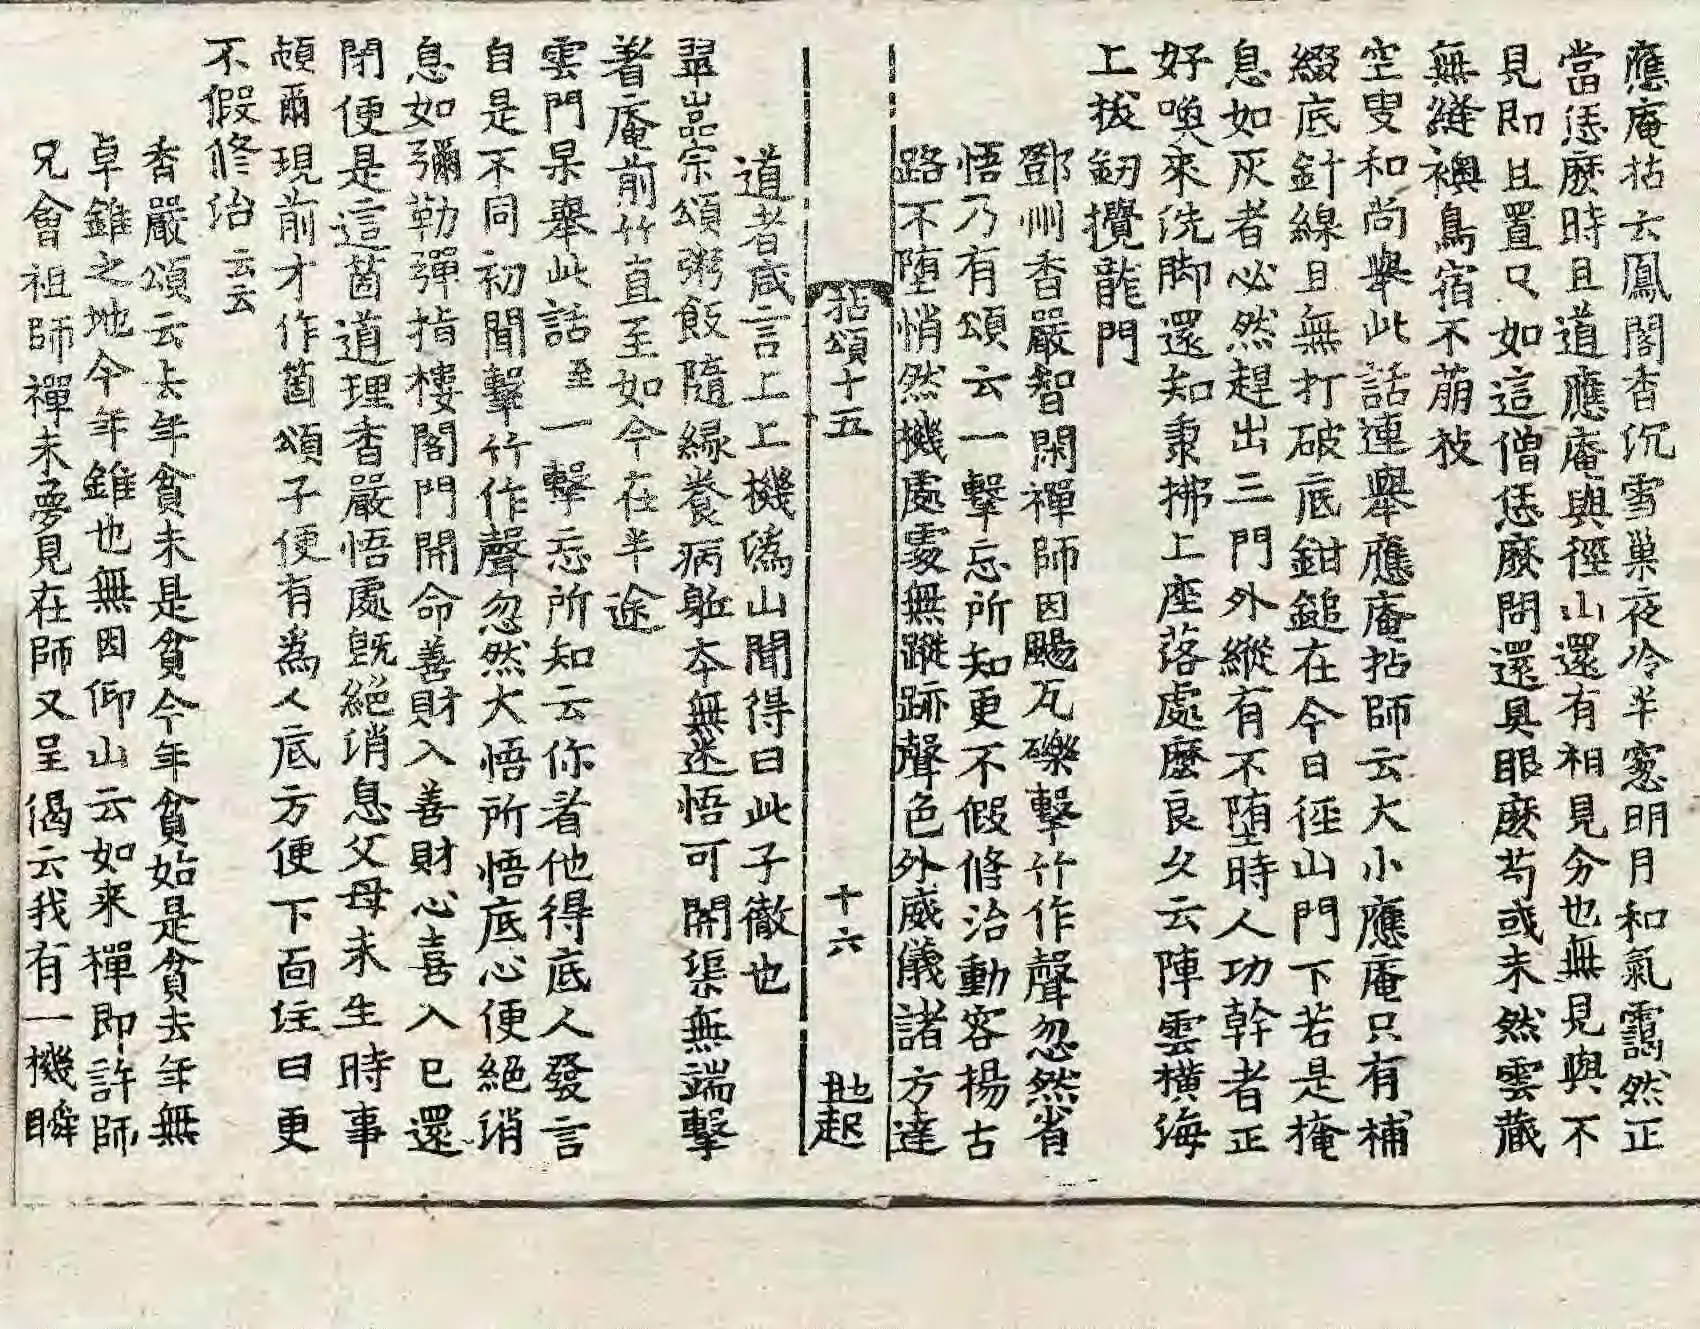 應庵拈云鳳閣香沉雪巢夜冷半窓明月和氣靄然正
當恁麽時且道應庵與徑山還有相見分也無見與不
見即且置只如這僧恁麽問還具眼麽苟或未然雲藏
無縫襖鳥宿不萠枝
空叟和尚擧此話連擧應庵拈師云大小應庵只有補
綴底針線且無打破底鉗鎚在今日徑山門下若是掩
息如灰者必然趕出三門外縱有不墮時人功幹者正
好喚來洗脚還知秉拂上座落處麽良久云陣雲橫海
上拔釰攪龍門
鄧州香嚴智閑禪師因颺瓦礫擊竹作聲忽然省
悟乃有頌云一擊忘所知更不假修治動容揚古
路不墮悄然機處處無蹤跡聲色外威儀諸方達
拈頌十五 十六 
道者咸言上上機潙山聞得曰此子徹也
翠嵓宗頌粥飯隨緣養病軀本無迷悟可開渠無端擊
著庵前竹直至如今在半途
雲門杲擧此話至一擊忘所知云你看他得底人發言
自是不同初聞擊竹作聲忽然大悟所悟底心便絕消
息如彌勒彈指樓閣門開命善財入善財心喜入已還
閉便是這箇道理香嚴悟處旣絕消息父母未生時事
頓爾現前才作箇頌子便有爲人底方便下面注曰更
不假修治云云
香嚴頌云去年貧未是貧今年貧始是貧去年無
卓錐之地今年錐也無因仰山云如来禪即許師
兄會祖師禪未夢見在師又呈偈云我有一機瞬